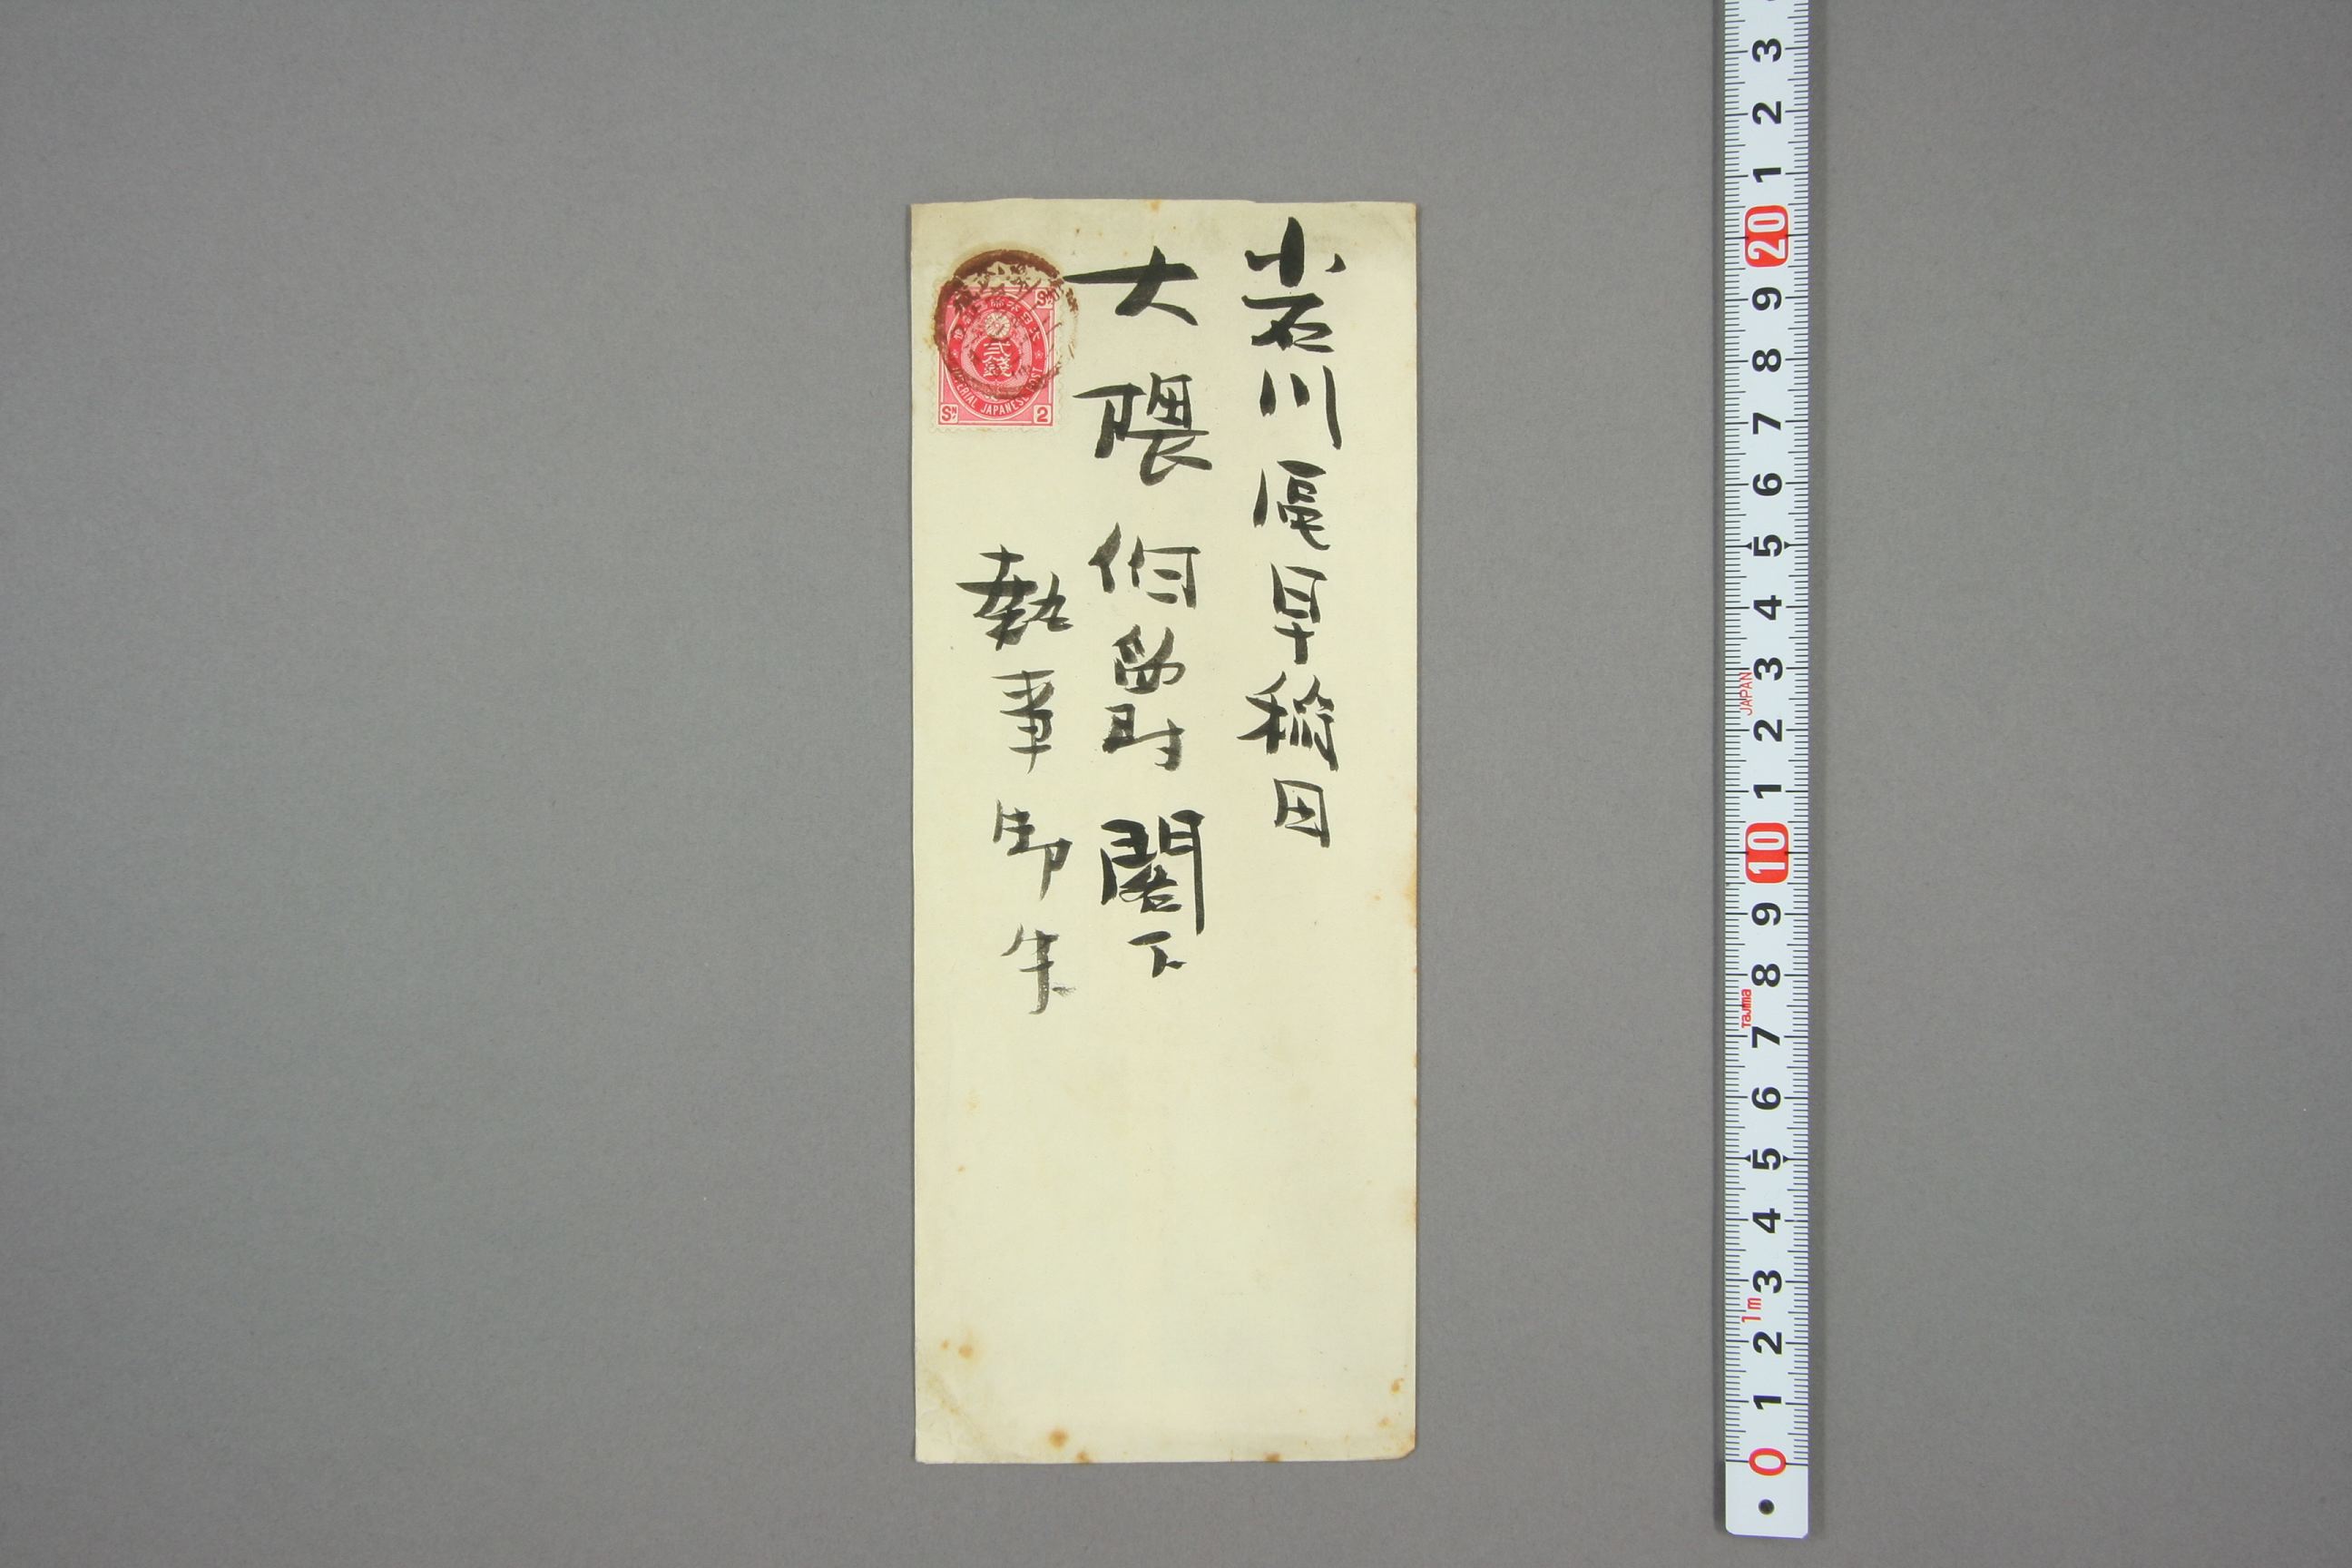 小石川區早稲田
大隈伯爵閣下
執事御中
貳錢
SN 2
IMPERIAL JAPANESE POST
3 2 1 20 9 8 7 6 5 4 3 2 1 10 9 8 7 6 5 4 3 2 1 0
JAPAN
Tajima
1m